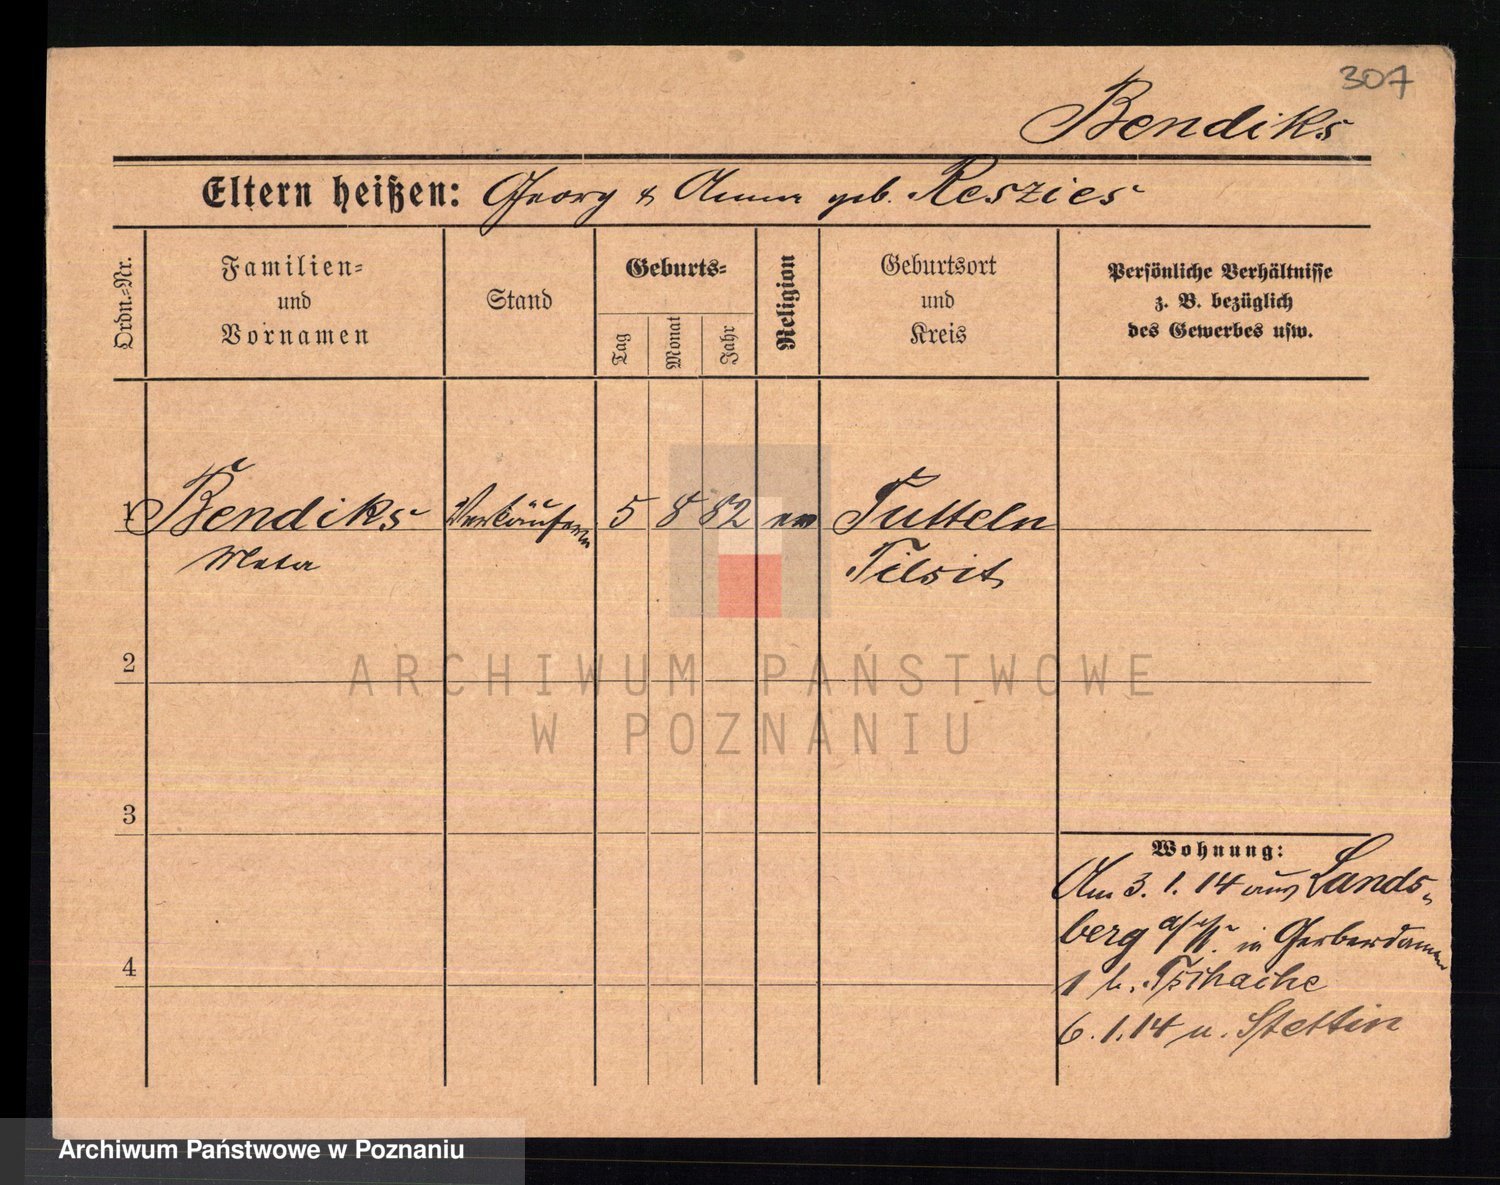 307
Bendiks
Eltern heißen: Georg & Anna geb. Reszies
Ordn.-Nr.
Familien-
und
Vornamen
Stand
Geburts-
Tag
Monat
Jahr
Religion
Geburtsort
und
Kreis
Persönliche Verhältnisse
z. B. bezüglich
des Gewerbes usw.
1 Bendiks Verkäuferin 5 8 82 ev Tutteln
Meta Tilsit
2
ARCHIWUM PAŃSTWOWE
W POZNANIU
3
Wohnung:
Am 3. 1. 14 aus Lands-
berg a/W. in Gerberdamm
4
1 b.
6. 1. 14 n. Stettin
Archiwum Państwowe w Poznaniu